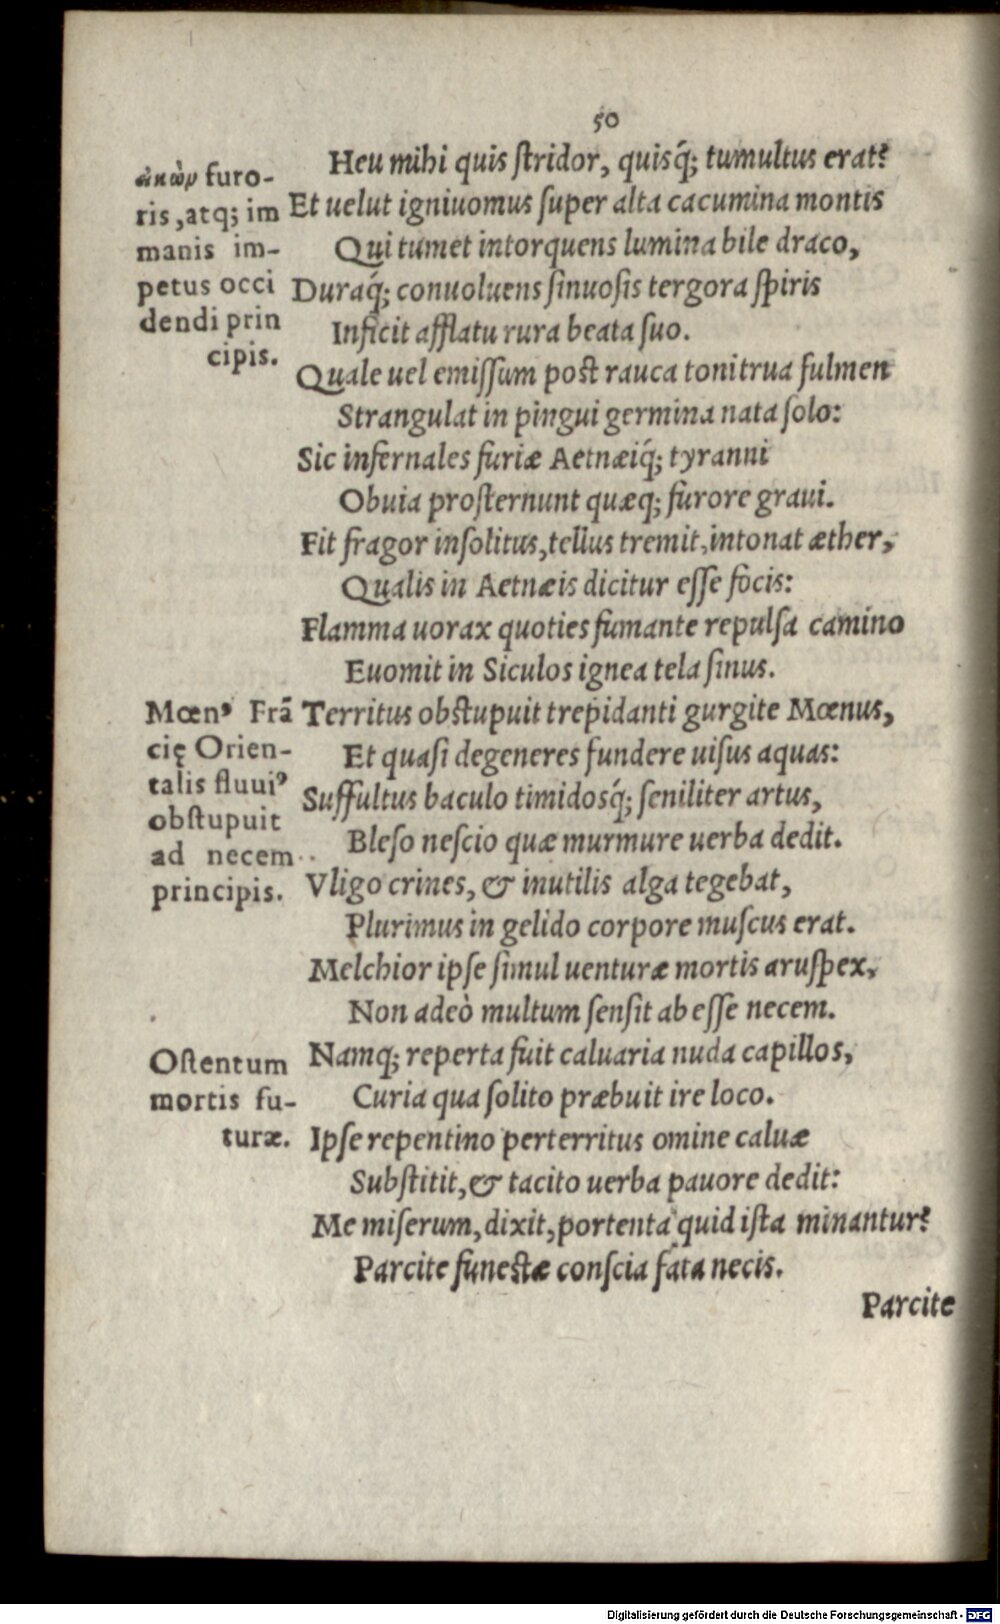 50
Heu mihi quis ſtridor, quisq́; tumultus erat?
Et uelut igniuomus ſuper alta cacumina montis
Qui tumet intorquens lumina bile draco,
Duraq́; conuoluens ſinuoſis tergora ſpiris
Inficit afflatu rura beata ſuo.
Quale uel emiſſum poſt rauca tonitrua fulmen
Strangulat in pingui germina nata ſolo:
Sic infernales furiæ Aetnæiq́; tyranni
Obuia proſternunt quæq; furore graui.
Fit fragor inſolitus, tellus tremit, intonat æther,
Qualis in Aetnæis dicitur eſſe focis:
Flamma uorax quoties fumante repulſa camino
Euomit in Siculos ignea tela ſinus.
Territus obſtupuit trepidanti gurgite Mœnus,
Et quaſi degeneres fundere uiſus aquas:
Suffultus baculo timidosq́; ſeniliter artus,
Bleſo neſcio quæ murmure uerba dedit.
Vligo crines, & inutilis alga tegebat,
Plurimus in gelido corpore muſcus erat.
Melchior ipſe ſimul uenturæ mortis aruſpex,
Non adeò multum ſenſit ab eſſe necem.
Namq; reperta fuit caluaria nuda capillos,
Curia qua ſolito præbuit ire loco.
Ipſe repentino perterritus omine caluæ
Subſtitit, & tacito uerba pauore dedit:
Me miſerum, dixit, portenta quid iſta minantur?
Parcite funeſtæ conſcia fata necis.
Parcite
furo-
ris, atq; im
manis im-
petus occi
dendi prin
cipis.
Mœnꝰ Frã
cię Orien-
talis fluuiꝰ
obſtupuit
ad necem
principis.
Oſtentum
mortis fu-
turæ.
Digitalisierung gefördert durch die Deutsche Forschungsgemeinschaft - DFG